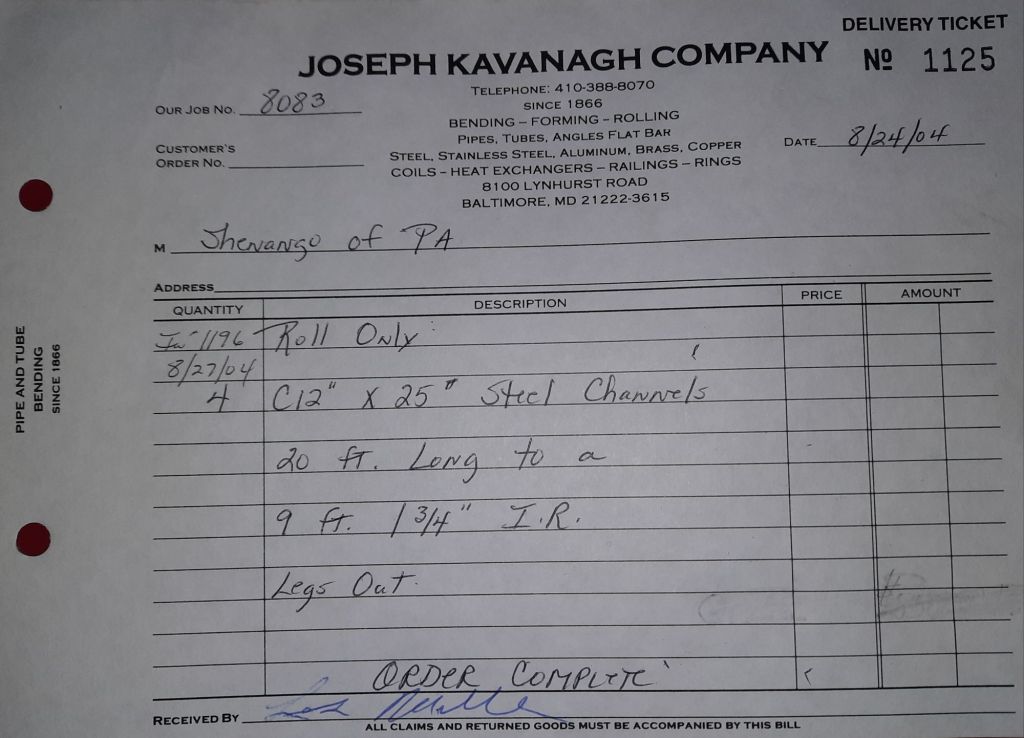 DELIVERY TICKET
JOSEPH KAVANAGH COMPANY
Nº 1125
TELEPHONE: 410-388-8070
OUR JOB NO. 8083
SINCE 1866
BENDING – FORMING – ROLLING
PIPES, TUBES, ANGLES FLAT BAR
DATE 8/24/04
CUSTOMER'S
ORDER NO.
STEEL, STAINLESS STEEL, ALUMINUM, BRASS, COPPER
COILS – HEAT EXCHANGERS – RAILINGS – RINGS
8100 LYNHURST ROAD
BALTIMORE, MD 21222-3615
M Shenango of PA
ADDRESS
QUANTITY DESCRIPTION PRICE AMOUNT
1196 Roll Only
8/27/04
4 C12" X 25" Steel Channels
20 ft. Long to a
9 ft. 1 3/4" I.R.
Legs Out
ORDER COMPLETE
RECEIVED BY
ALL CLAIMS AND RETURNED GOODS MUST BE ACCOMPANIED BY THIS BILL
PIPE AND TUBE
BENDING
SINCE 1866